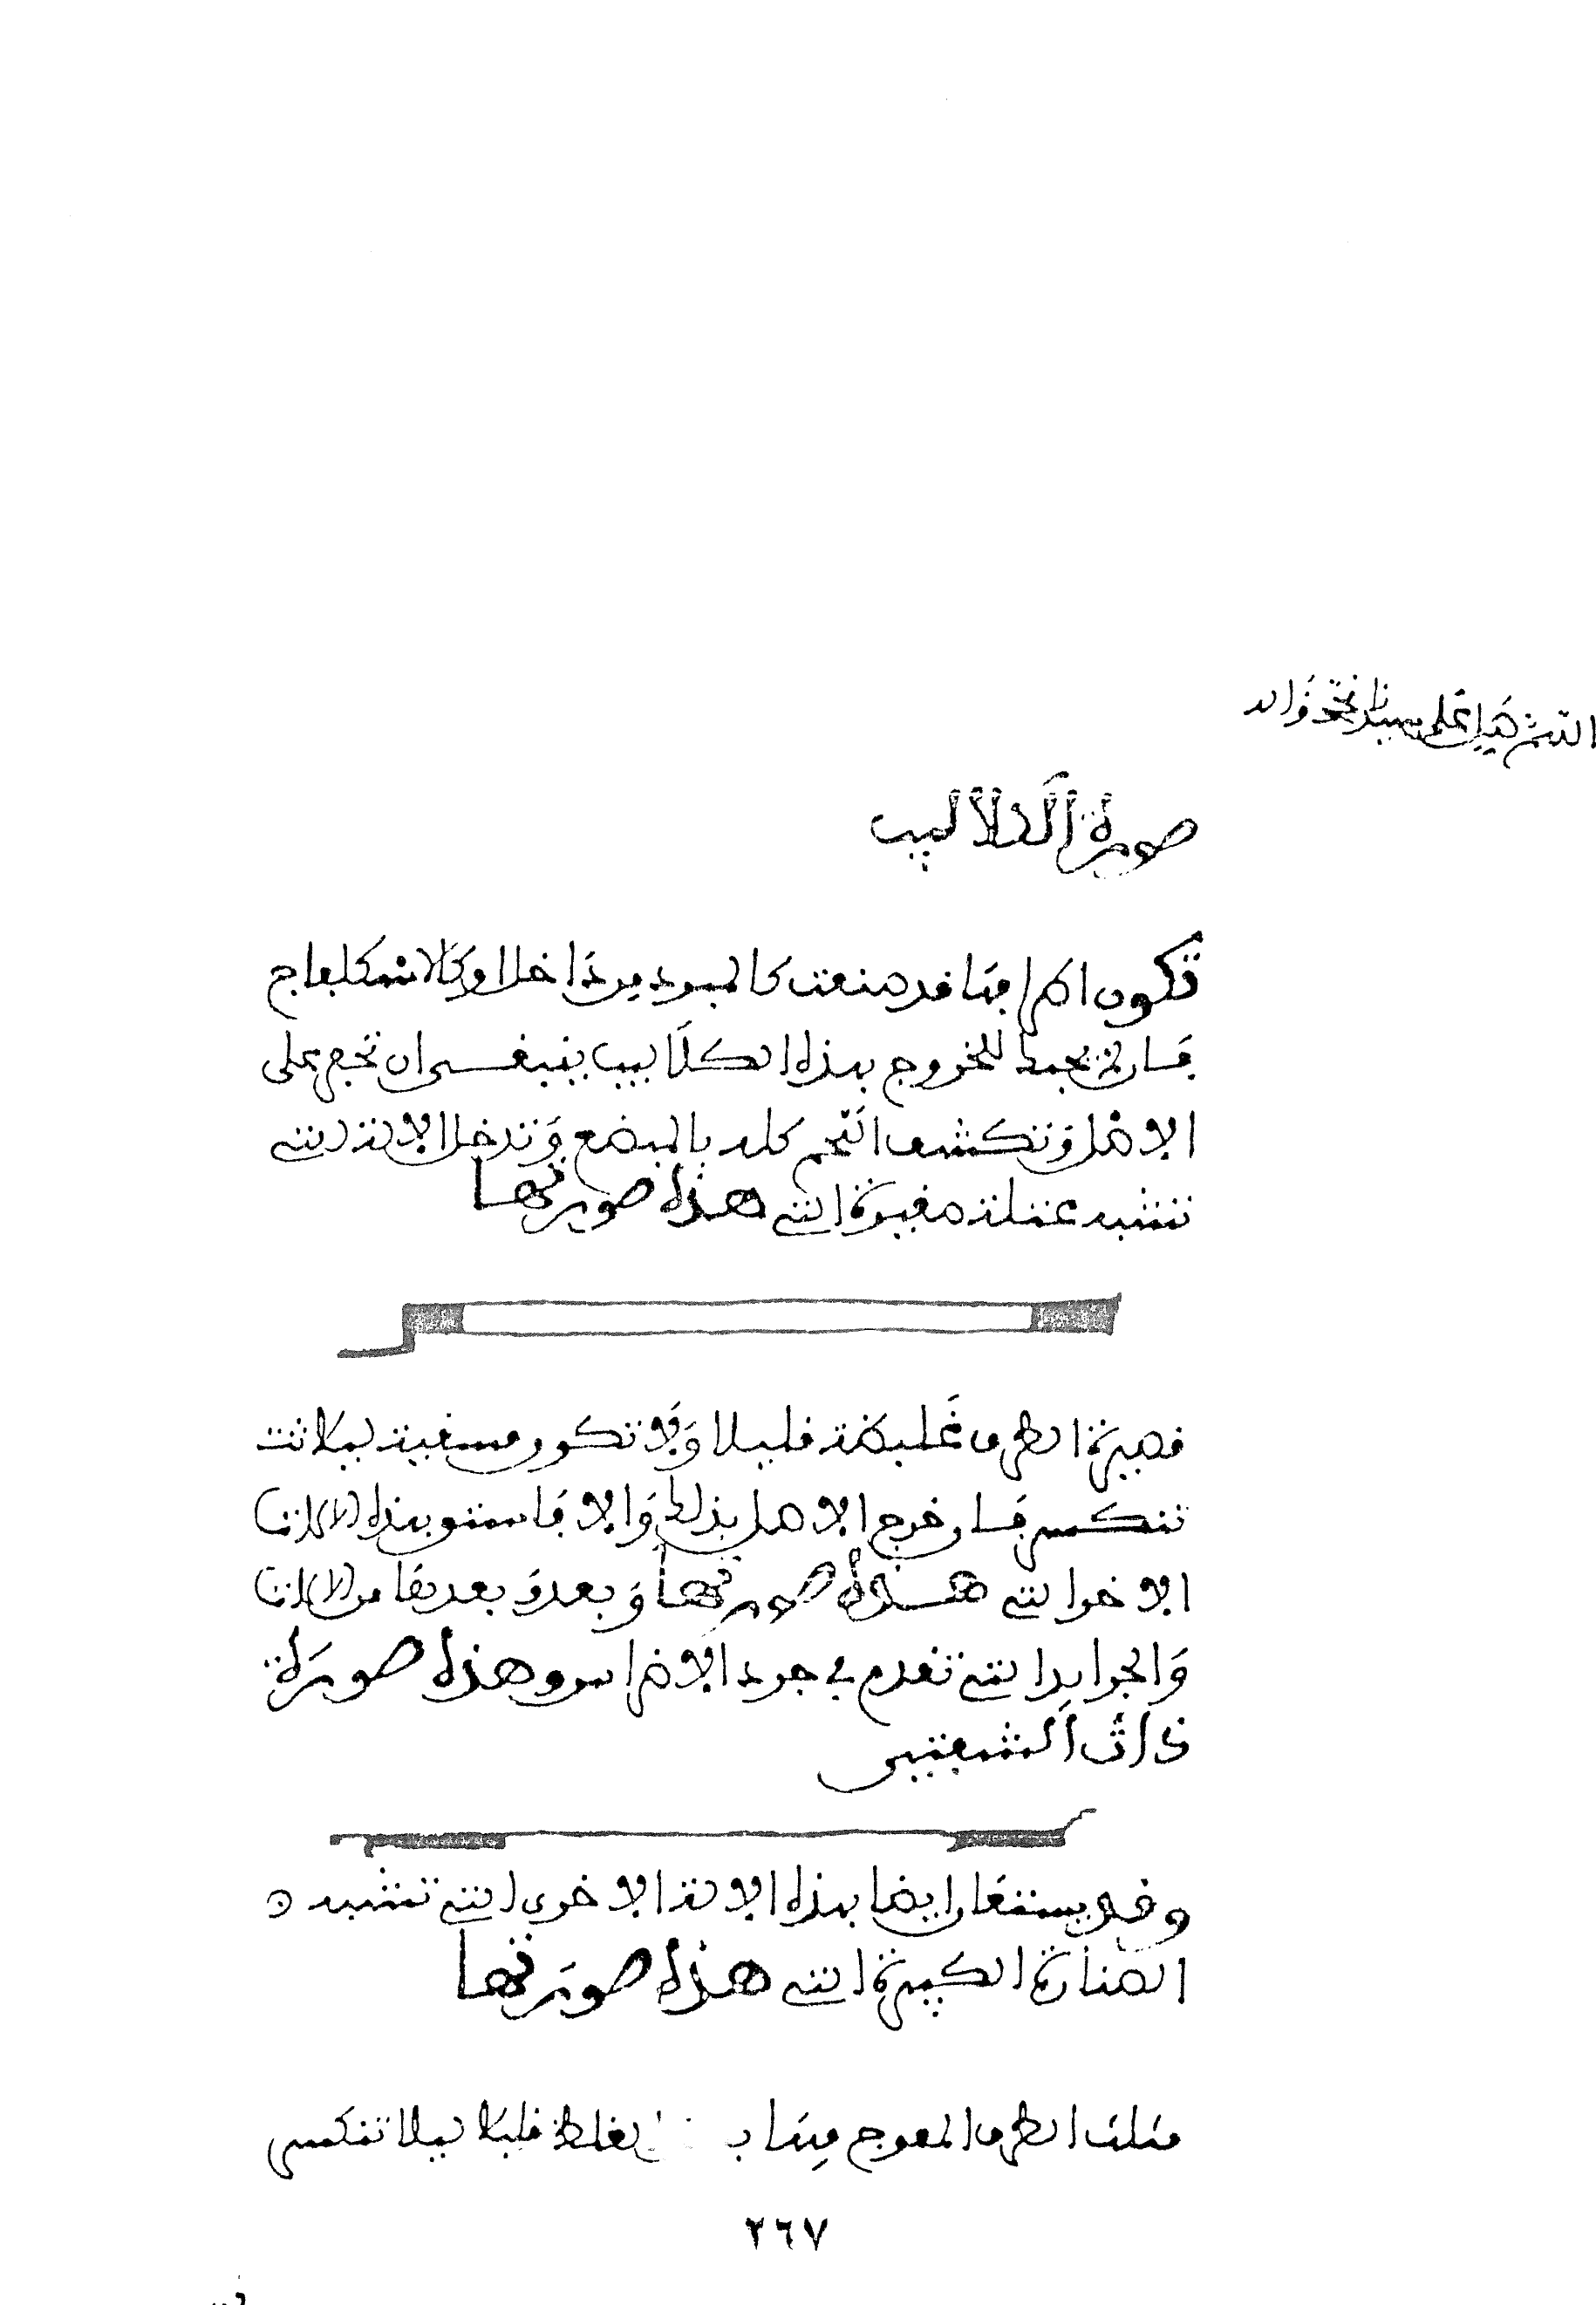 اللهم صل على سيدنا محمد واله
صورة الكلاليب
تكون اطرافها قد صنعت كالمبرد من داخل او كالاسكلفاج
فان لم يجبك للخروج بهذه الكلاليب ينبغى ان تحفر على
الاصل وتكشف اللحم كله بالمبضع وتدخل الالة التى
تشبه عتلة صغيرة التى هذه صورتها
قصيرة الطرف غليظة قليلا ولا تكون مسقية ليلا
تنكسر فان خرج الاصل بذلك والا فاستعن بهذه الالات
الاخر التى هذه صورتها وبعد بعدها من الالات
والجرايد التى تقدم فى جرد الاضراس وهذه صورة
ذات الشعبتين
وقد يستعان ايضا بهذه الالة الاخرى التى تشبه
الصنارة الكبيرة التى هذه صورتها
مثلث الطرف المعوج فيها بغلظ قليلا ليلا تنكسر
٢٦٧